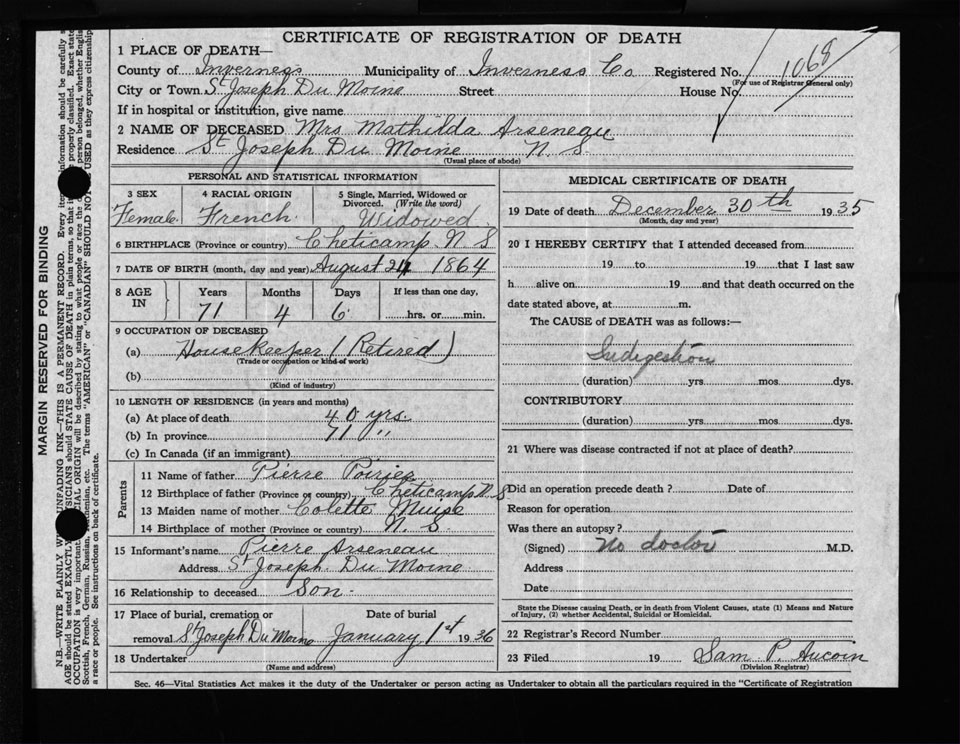 CERTIFICATE OF REGISTRATION OF DEATH
1 PLACE OF DEATH—
County of Inverness Municipality of Inverness Co Registered No. 1068
(For use of Registrar General only)
City or Town St Joseph Du Moine Street House No.
If in hospital or institution, give name
2 NAME OF DECEASED Mrs Mathilda Arseneau
Residence St Joseph Du Moine N. S.
(Usual place of abode)
PERSONAL AND STATISTICAL INFORMATION
3 SEX 4 RACIAL ORIGIN 5 Single, Married, Widowed or
Divorced. (Write the word)
Female. French. Widowed
6 BIRTHPLACE (Province or country) Cheticamp. N. S
7 DATE OF BIRTH (month, day and year) August 24 1864
8 AGE IN Years Months Days If less than one day,
71 4 6 hrs. or min.
9 OCCUPATION OF DECEASED
(a) Housekeeper (Retired)
(Trade or occupation or kind of work)
(b)
(Kind of industry)
10 LENGTH OF RESIDENCE (in years and months)
(a) At place of death 40 yrs.
(b) In province 71 "
(c) In Canada (if an immigrant)
Parents
11 Name of father Pierre Poirier
12 Birthplace of father (Province or country) Cheticamp N. S
13 Maiden name of mother Colette Muise
14 Birthplace of mother (Province or country) N. S.
15 Informant's name Pierre Arseneau
Address St Joseph Du Moine
16 Relationship to deceased Son.
17 Place of burial, cremation or Date of burial
removal St Joseph Du Moine January 1st 1936
18 Undertaker
(Name and address)
MEDICAL CERTIFICATE OF DEATH
19 Date of death December 30th 1935
(Month, day and year)
20 I HEREBY CERTIFY that I attended deceased from
19 to 19 that I last saw
h alive on 19 and that death occurred on the
date stated above, at m.
The CAUSE of DEATH was as follows:—
Indigestion
(duration) yrs. mos. dys.
CONTRIBUTORY
(duration) yrs. mos. dys.
21 Where was disease contracted if not at place of death?
Did an operation precede death? Date of
Reason for operation
Was there an autopsy?
(Signed) No doctor M.D.
Address
Date
State the Disease causing Death, or in death from Violent Causes, state (1) Means and Nature
of Injury, (2) whether Accidental, Suicidal or Homicidal.
22 Registrar's Record Number
23 Filed 19 Sam P. Aucoin
(Division Registrar)
Sec. 46—Vital Statistics Act makes it the duty of the Undertaker or person acting as Undertaker to obtain all the particulars required in the "Certificate of Registration
MARGIN RESERVED FOR BINDING
N.B.—WRITE PLAINLY UNFADING INK—THIS IS A PERMANENT RECORD. Every item information should be carefully
AGE should be stated EXACTLY SICIANS should STATE CAUSE OF DEATH in plain terms, so that it properly classified. Exact
OCCUPATION is very important. RACIAL ORIGIN will be described by stating to what people or race the person belonged, whether
Scottish, French, German, Russian, etc. The terms "AMERICAN" or "CANADIAN" SHOULD NOT USED as they express citizenship
a race or people. See instructions on back of certificate.